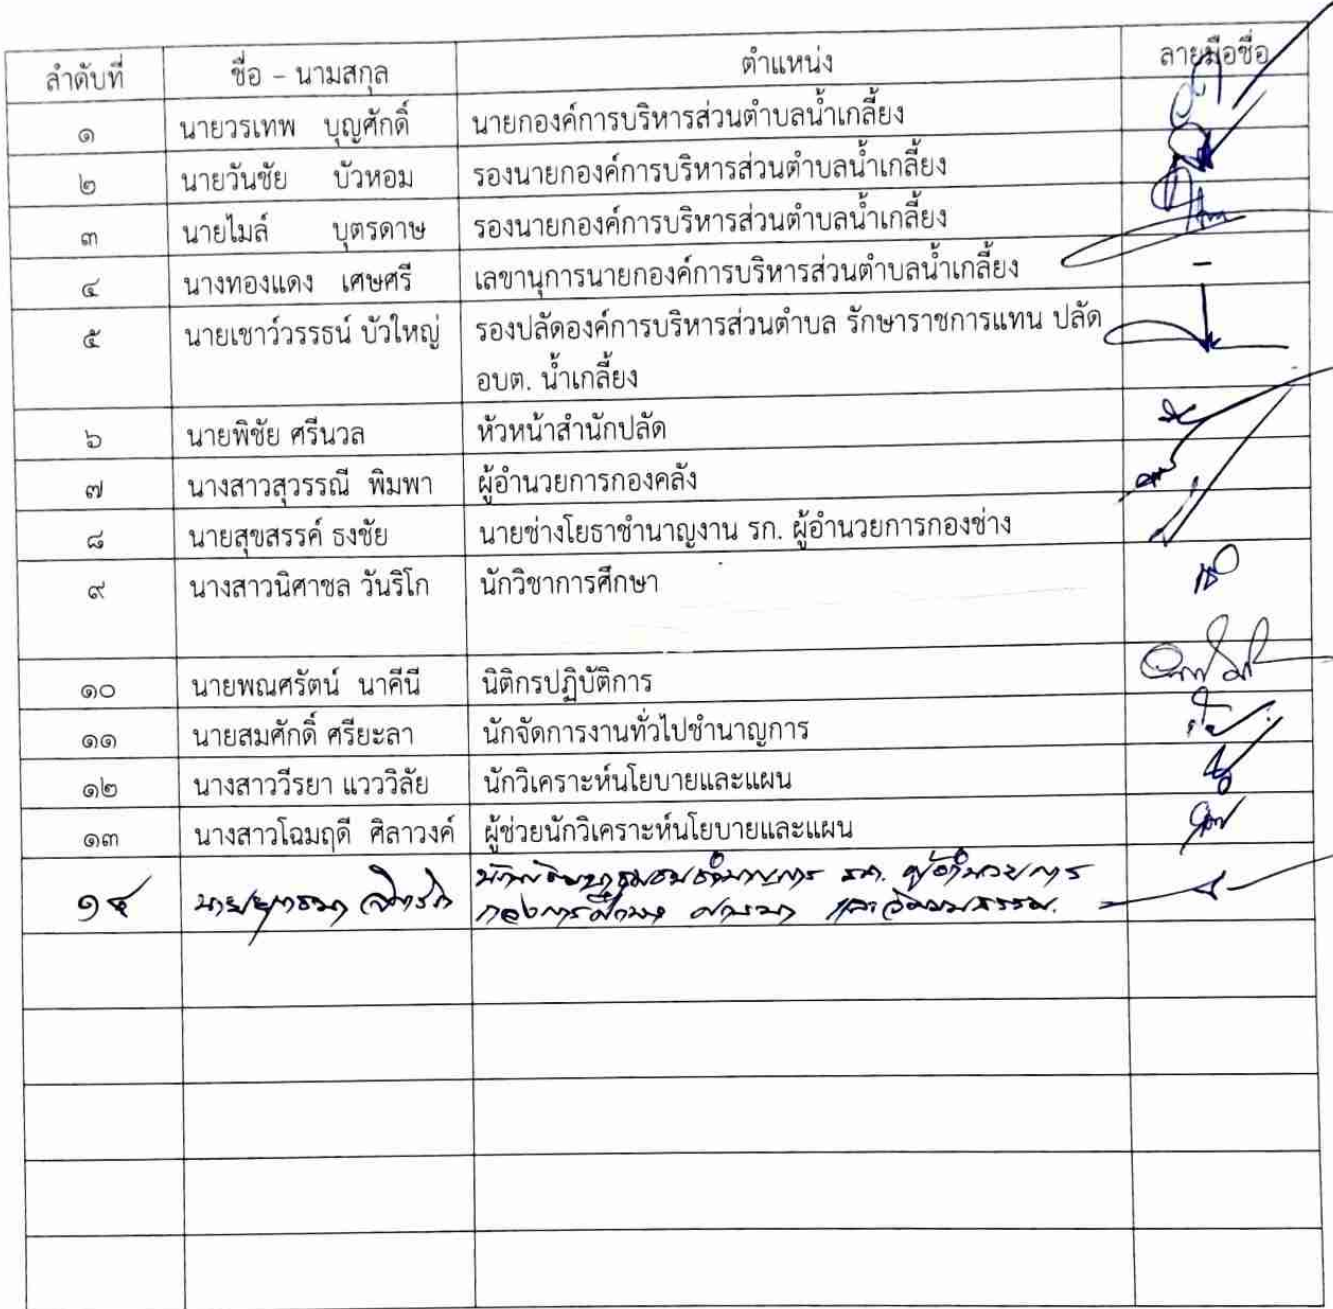 ลำดับที่ ชื่อ – นามสกุล ตำแหน่ง ลายมือชื่อ
๑ นายวรเทพ บุญศักดิ์ นายกองค์การบริหารส่วนตำบลน้ำเกลี้ยง
๒ นายวันชัย บัวหอม รองนายกองค์การบริหารส่วนตำบลน้ำเกลี้ยง
๓ นายไมล์ บุตรดาษ รองนายกองค์การบริหารส่วนตำบลน้ำเกลี้ยง
๔ นางทองแดง เศษศรี เลขานุการนายกองค์การบริหารส่วนตำบลน้ำเกลี้ยง –
๕ นายเชาว์วรรธน์ บัวใหญ่ รองปลัดองค์การบริหารส่วนตำบล รักษาราชการแทน ปลัด
อบต. น้ำเกลี้ยง
๖ นายพิชัย ศรีนวล หัวหน้าสำนักปลัด
๗ นางสาวสุวรรณี พิมพา ผู้อำนวยการกองคลัง
๘ นายสุขสรรค์ ธงชัย นายช่างโยธาชำนาญงาน รก. ผู้อำนวยการกองช่าง
๙ นางสาวนิศาชล วันริโก นักวิชาการศึกษา
๑๐ นายพณศรัตน์ นาคีนี นิติกรปฏิบัติการ
๑๑ นายสมศักดิ์ ศรียะลา นักจัดการงานทั่วไปชำนาญการ
๑๒ นางสาววีรยา แวววิลัย นักวิเคราะห์นโยบายและแผน
๑๓ นางสาวโฉมฤดี ศิลาวงค์ ผู้ช่วยนักวิเคราะห์นโยบายและแผน
๑๔ นักพัฒนาชุมชนชำนาญการ รก. ผู้อำนวยการ
กองการศึกษา ศาสนา และวัฒนธรรม.